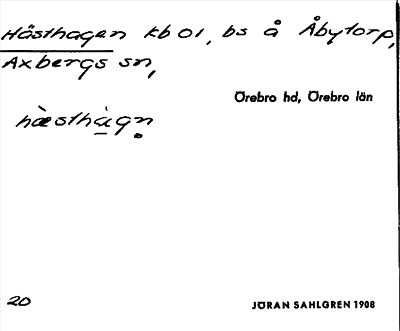 Hästhagen kb 01, bs å Åbytorp,
Axbergs sn,
Örebro hd, Örebro län
hæ̀sthа̀gn̥
20
JÖRAN SAHLGREN 1908